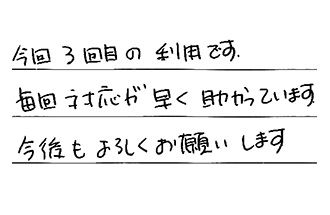 今回3回目の利用です.
毎回対応が早く助かっています
今後もよろしくお願いします